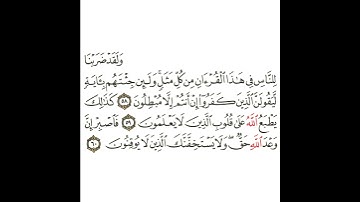 وَلَقَدْ ضَرَبْنَا
لِلنَّاسِ فِي هَٰذَا ٱلْقُرْءَانِ مِن كُلِّ مَثَلٍ ۚ وَلَئِن جِئْتَهُم بِـَٔايَةٍ
لَّيَقُولَنَّ ٱلَّذِينَ كَفَرُوٓا۟ إِنْ أَنتُمْ إِلَّا مُبْطِلُونَ ٥٨ كَذَٰلِكَ
يَطْبَعُ ٱللَّهُ عَلَىٰ قُلُوبِ ٱلَّذِينَ لَا يَعْلَمُونَ ٥٩ فَٱصْبِرْ إِنَّ
وَعْدَ ٱللَّهِ حَقٌّ ۖ وَلَا يَسْتَخِفَّنَّكَ ٱلَّذِينَ لَا يُوقِنُونَ ٦٠